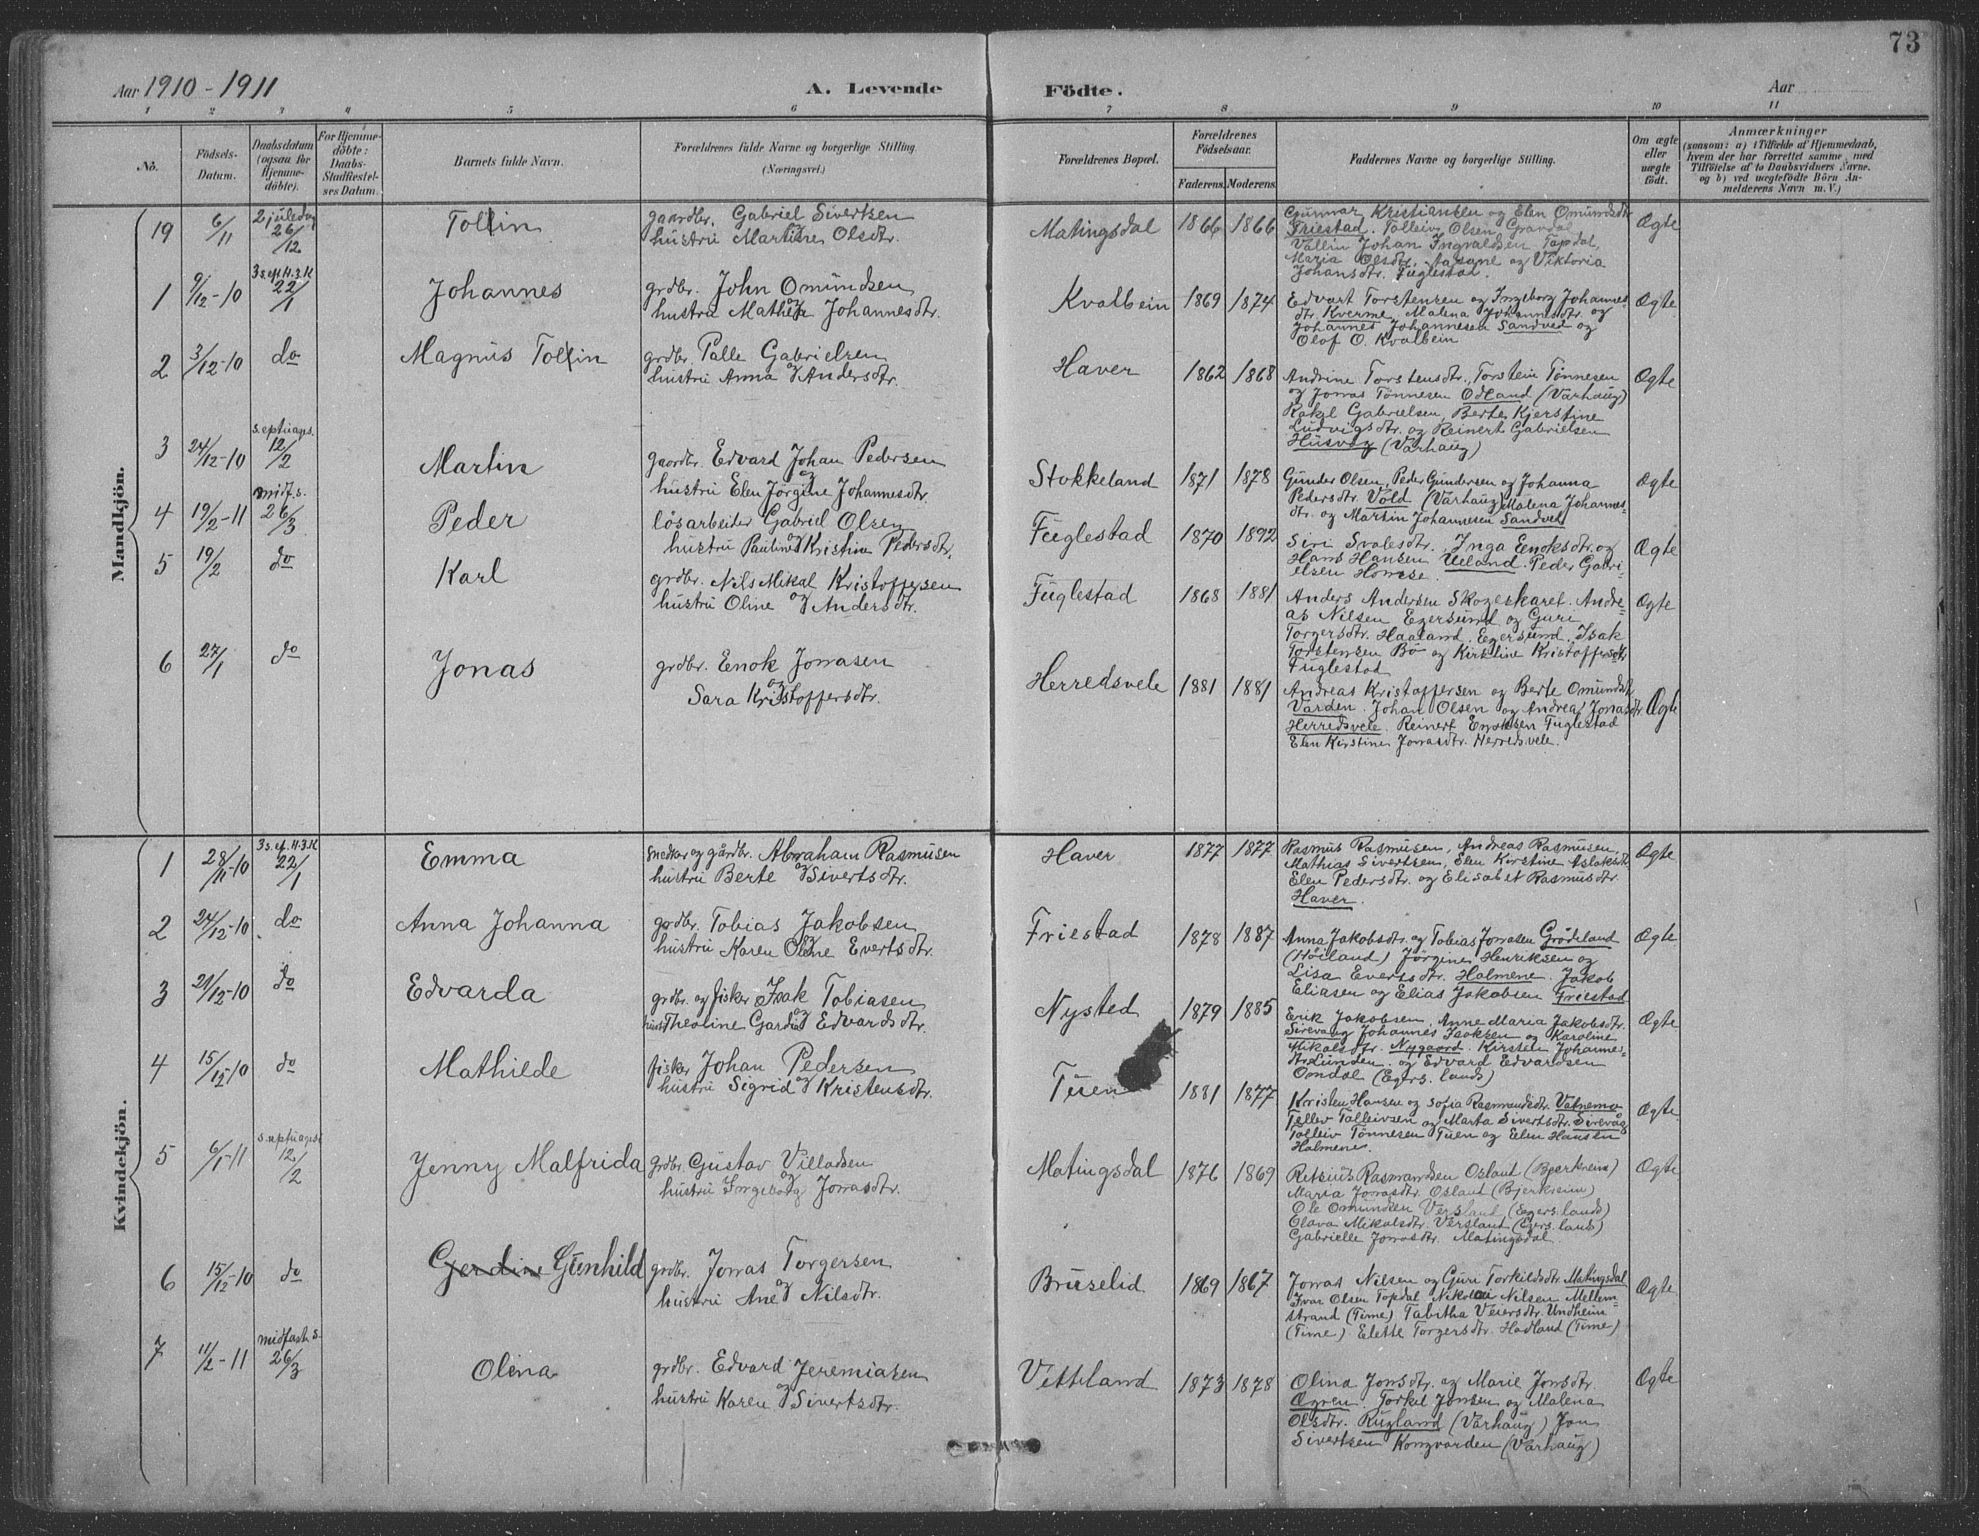 73
Aar 1910 - 1911
A. Levende Födte.
Aar
1 2 3 4 5 6 7 8 9 10 11
No.
Födsels-Datum.
Daabsdatum (ogsaa for Hjemme-döbte).
For Hjemme-döbte: Daabs-Stadfæstel-ses Datum.
Barnets fulde Navn.
Forældrenes fulde Navne og borgerlige Stilling. (Næringsvei.)
Forældrenes Bopæl.
Forældrenes Födselsaar.
Faderens. Moderens.
Faddernes Navne og borgerlige Stilling.
Om ægte eller uægte födt.
Anmærkninger
(saasom: a) i Tilfælde af Hjemmedaab, hvem der har forrettet samme, med Tilföielse af to Daabsvidners Navne. og b) ved uægtefödte Börn An-melderens Navn m. V.)
Mandkjön.
19 6/11 2 juledag 26/12 Tollin gaardbr. Gabriel Sivertsen og
hustru Martine Olsdtr. Matingsdal 1866 1866 Ægte
Gunnar Kristiansen og Elen Omundsdtr
Friestad. Tolleiv Olsen, Gravdal
Vallin Johan Ingvaldsen Tapdal,
Maria Olsdtr. Aasane og Viktoria
Johansdtr. Fuglestad.
1 9/12-10 3 s. eft. H. 3. K 22/1 Johannes grdbr. John Omundsen og
hustru Mathea Johannesdtr. Kvalbein 1869 1874 Ægte
Edvart Torstensen og Ingeborg Johannes-
dtr. Kverme, Malena Johannesdtr. og
Johannes Johannesen Sandved og
Olaf O. Kvalbein
2 3/12-10 do Magnus Tollin grdbr. Palle Gabrielsen
hustru Anna og Andersdtr. Haver 1862 1868 Ægte
Andrine Torstensdtr., Torstein Tönnesen
og Jonas Tönnesen Odland (Varhaug)
Rakel Gabrielsen, Berte Kjerstine
Ludvigsdtr. og Reinert Gabrielsen
Husvåg (Varhaug)
3 24/12-10 septuags. 12/2 Martin gaardbr. Edvard Johan Pedersen
og
hustru Elen Jörgine Johannesdtr. Stokkeland 1871 1878 Ægte
Gunder Olsen, Peder Gundersen og Johanna
Pedersdtr. Vold (Varhaug) Malena Johannes-
dtr. og Martin Johannesen Sandved
4 19/2-11 midf. s. 26/3 Peder lösarbeider Gabriel Olsen
hustru Pauline og Kristine Pedersdtr. Fuglestad 1870 1892 Ægte
Siri Svalesdtr. Inga Enoksdtr. og
Hans Hansen Ueland. Peder Gabri-
elsen Homse.
5 19/2 do Karl grdbr. Nils Mikal Kristoffersen
hustru Oline og Andersdtr. Fuglestad 1868 1881 Ægte
Anders Andersen Skogeskaret. Andre-
as Nilsen Egersund og Guri
Torgersdtr. Haaland. Egersund. Isak
Torstensen Bö og Kirstine Kristoffersdtr
Fuglestad
6 27/1 do Jonas grdbr. Enok Jonasen
og
Sara Kristoffersdtr. Herredsvele 1881 1881 Ægte
Andreas Kristoffersen og Berte Omundsdtr
Varden. Johan Olsen og Andrea Jonasdtr
Herredsvele. Reinert Enoksen Fuglestad
Elen Kirstine Jonasdtr. Herredsvele.
Kvindekjön.
1 28/11-10 3 s. ef. H. 3. K 22/1 Emma Snedker og gårdbr. Abraham Rasmusen
hustru Berte og Sivertsdtr. Haver 1877 1877 Ægte
Rasmus Rasmusen, Andreas Rasmusen,
Mathias Sivertsen, Elen Kirstine Aslaksdtr
Elen Pedersdtr. og Elisabet Rasmusdtr
Haver.
2 24/12-10 do Anna Johanna grdbr. Tobias Jakobsen
og
hustru Karen Oline Evertsdtr. Friestad 1878 1887 Ægte
Anna Jakobsdtr. og Tobias Jonasen Grödeland
(Höiland) Jörgine Henriksen og
Lisa Evertsdtr. Holmene. Jakob
Eliasen og Elias Jakobsen Friestad
3 21/12-10 do Edvarda grdbr. og fisker Isak Tobiasen
og
hust. Theoline Gardine Edvardsdtr. Nysted 1879 1885 Ægte
Erik Jakobsen, Anne Maria Jakobsdtr.
Sirevaag Johannes Isaksen og Karoline
Mikalsdtr. Nygaard. Kirsten Johannes-
dtr. Lunden. og Edvard Edvardsen
Omdal (Egers. lands)
4 15/12-10 do Mathilde fisker Johan Pedersen
hustru Sigrid og Kristensdtr. Tuen 1881 1877 Ægte
Kristen Hansen og Sofia Rasmundsdtr. Vatnemo
Tellev Talleivsen og Marta Sivertsdtr. Sirevåg
Tolleiv Tönnesen Tuen og Elen Hansen
Holmene.
5 6/1-11 septuags. 12/2 Jenny Malfrida grdbr. Gustav Villadsen
og
hustru Ingeborg Jonasdtr. Matingsdal 1876 1869 Ægte
Rasmundsen Osland (Bjerkreim)
Maria Jonasdtr. Osland (Bjerkreim)
Ole Omundsen Versland (Egers. lands)
Olava Mikalsdtr. Versland (Egers. lands)
Gabrielle Jonasdtr. Matingsdal.
6 15/12-10 do Gerdine Gunhild grdbr. Jonas Torgersen
og
hustru Ane Nilsdtr. Bruselid 1869 1867 Ægte
Jonas Nilsen og Guri Torkildsdtr. Matingsdal
Ivar Olsen Topdal Nikolai Nilsen Mellem-
strand (Time) Tabitha Veiersdtr. Undheim
(Time) Elette Torgersdtr. Hadland (Time)
7 11/2-11 midfast s. 26/3 Olina grdbr. Edvard Jeremiasen
og
hustru Karen Sivertsdtr. Vetteland 1873 1878 Ægte
Olina Jonsdtr. og Marie Jonsdtr.
Ægren. Torkel Jonsen og Malena
Olsdtr. Rugland (Varhaug) Jon
Sivertsen Kongvarden (Varhaug)